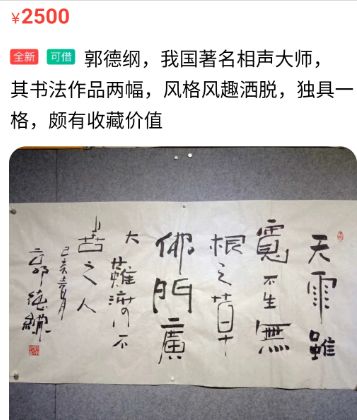 ¥2500
全新 可借 郭德纲，我国著名相声大师，
其书法作品两幅，风格风趣洒脱，独具一
格，颇有收藏价值
天雨雖
寬不生無
根之草
佛門廣
大難渡不
善之人
己亥
郭德綱